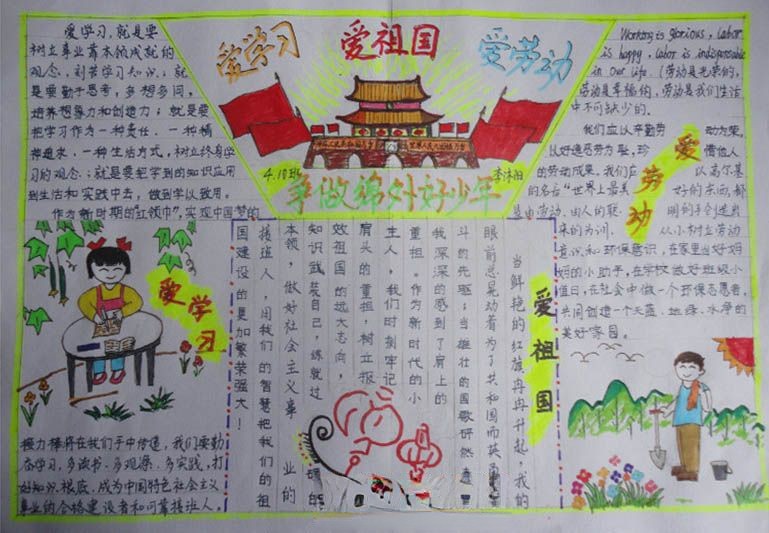 爱学习
爱祖国
爱劳动
4.10班
李沐阳
争做绵外好少年
爱学习，就是要
树立事业靠本领成就的
观念，刻苦学习知识；就
是要勤于思考，多想多问，
培养想象力和创造力；就是要
把学习作为一种责任、一种精
神追求、一种生活方式，树立终身学
习的观念；就是要把学到的知识应用
到生活和实践中去，做到学以致用。
作为新时期的"红领巾"，实现中国梦的
接力棒将在我们手中传递，我们要勤
奋学习，多读书、多观源、多实践，打
好知识根底，成为中国特色社会主义
事业的合格建设者和可靠接班人。
爱学习
爱祖国
当鲜艳的红旗冉冉升起，我的
眼前总晃动着为了共和国而英勇
斗的先驱；当雄壮的国歌
我深深的感到了肩上的
重担。作为新时代的小
主人，我们时刻牢记
肩头的重担，树立报
效祖国的远大志向，
知识武装自己，练就过
本领，做好社会主义事业的
接班人，用我们的智慧把我们的祖
国建设的更加繁荣强大！
Working is glorious, labor
is happy, labor is indispensable
in our life.（劳动是光荣的，
劳动是幸福的，劳动是我们生活
中不可缺少的。
我们应以辛勤劳动为荣，
以好逸恶劳为耻，珍惜他人
的劳动成果。我们应以高尔基
的名言"世界上最美好的东西，都
是由劳动、由人的聪明的手创造出
来的为词，从小树立劳动
意识和环保意识，在家里当好妈
妈的小助手，在学校做好班级小
值日，在社会中做一个环保志愿者，
共同创造一个天蓝、地绿、水净的
美好家园。
爱劳动